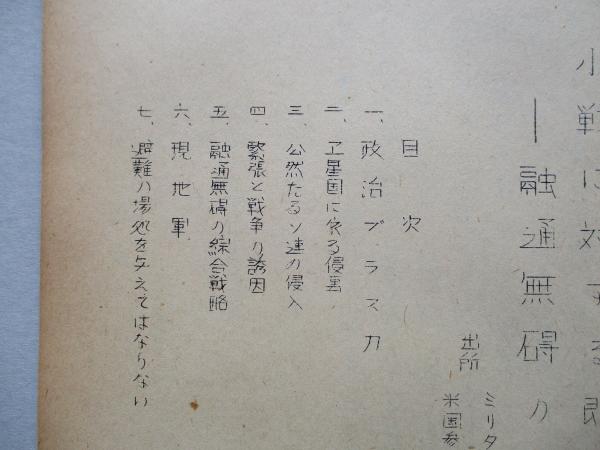 小戦に対する即
―融通無碍の
出所 ミリタ
米国参
目次
一、政治プラス力
二、卫星国に依る侵害
三、公然たるソ連の侵入
四、緊張と戦争の誘因
五、融通無碍の綜合戦略
六、現地軍
七、避難の場処を与えてはならない